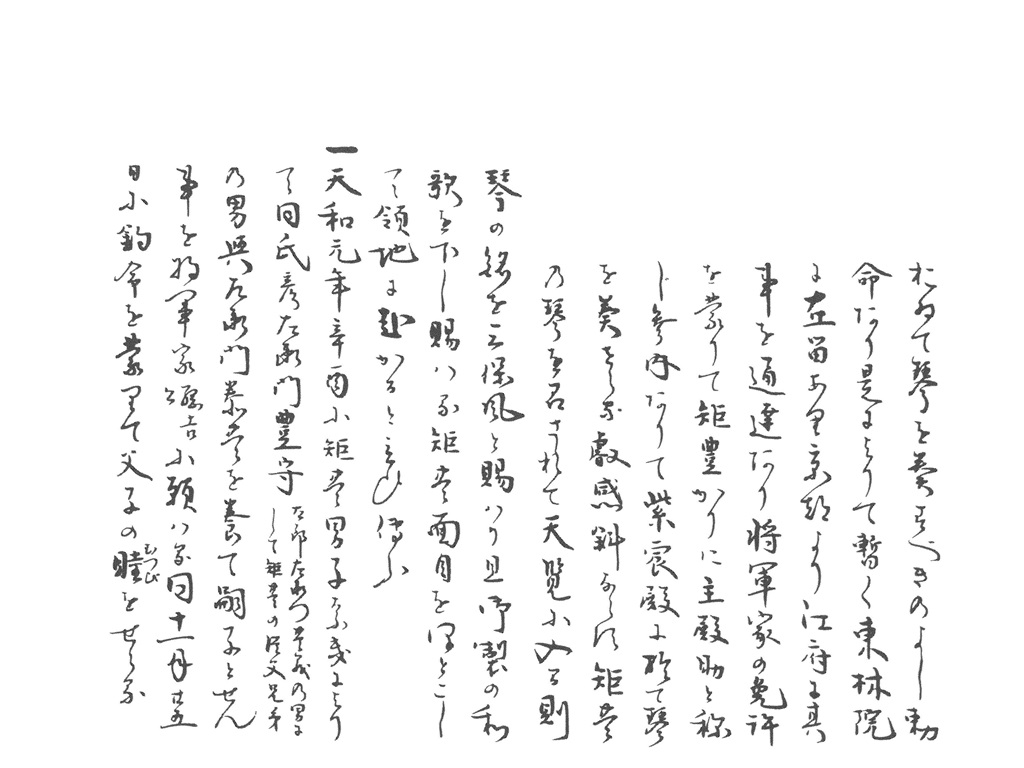 おゐて琴を奏すべきのよし勅
命なり是によりて暫く東林院
に在留あり京都より江府に其
事を通達なり将軍家の免許
を蒙りて矩豊かりに主殿助と称
し参内なりて紫宸殿に於て琴
を奏せらる叡感斜ならす矩豊
の琴を召されて天覧に入る則
琴の銘を三保風と賜ハり且御製の和
歌を下し賜ハる矩豊面目をほとこし
て領地に赴かるといひ傳ふ
一天和元年辛酉に矩豊男子なきにより
て同氏彦左衛門豊守
左郎左衛門豊義の男に
して矩豊の伯父兄弟
の男与左衛門泰豊を養て嗣子とせん
事を将軍家綱吉に願ハる同十一月廿五
日に釣命を蒙りて父子の睦をせらる
むつび